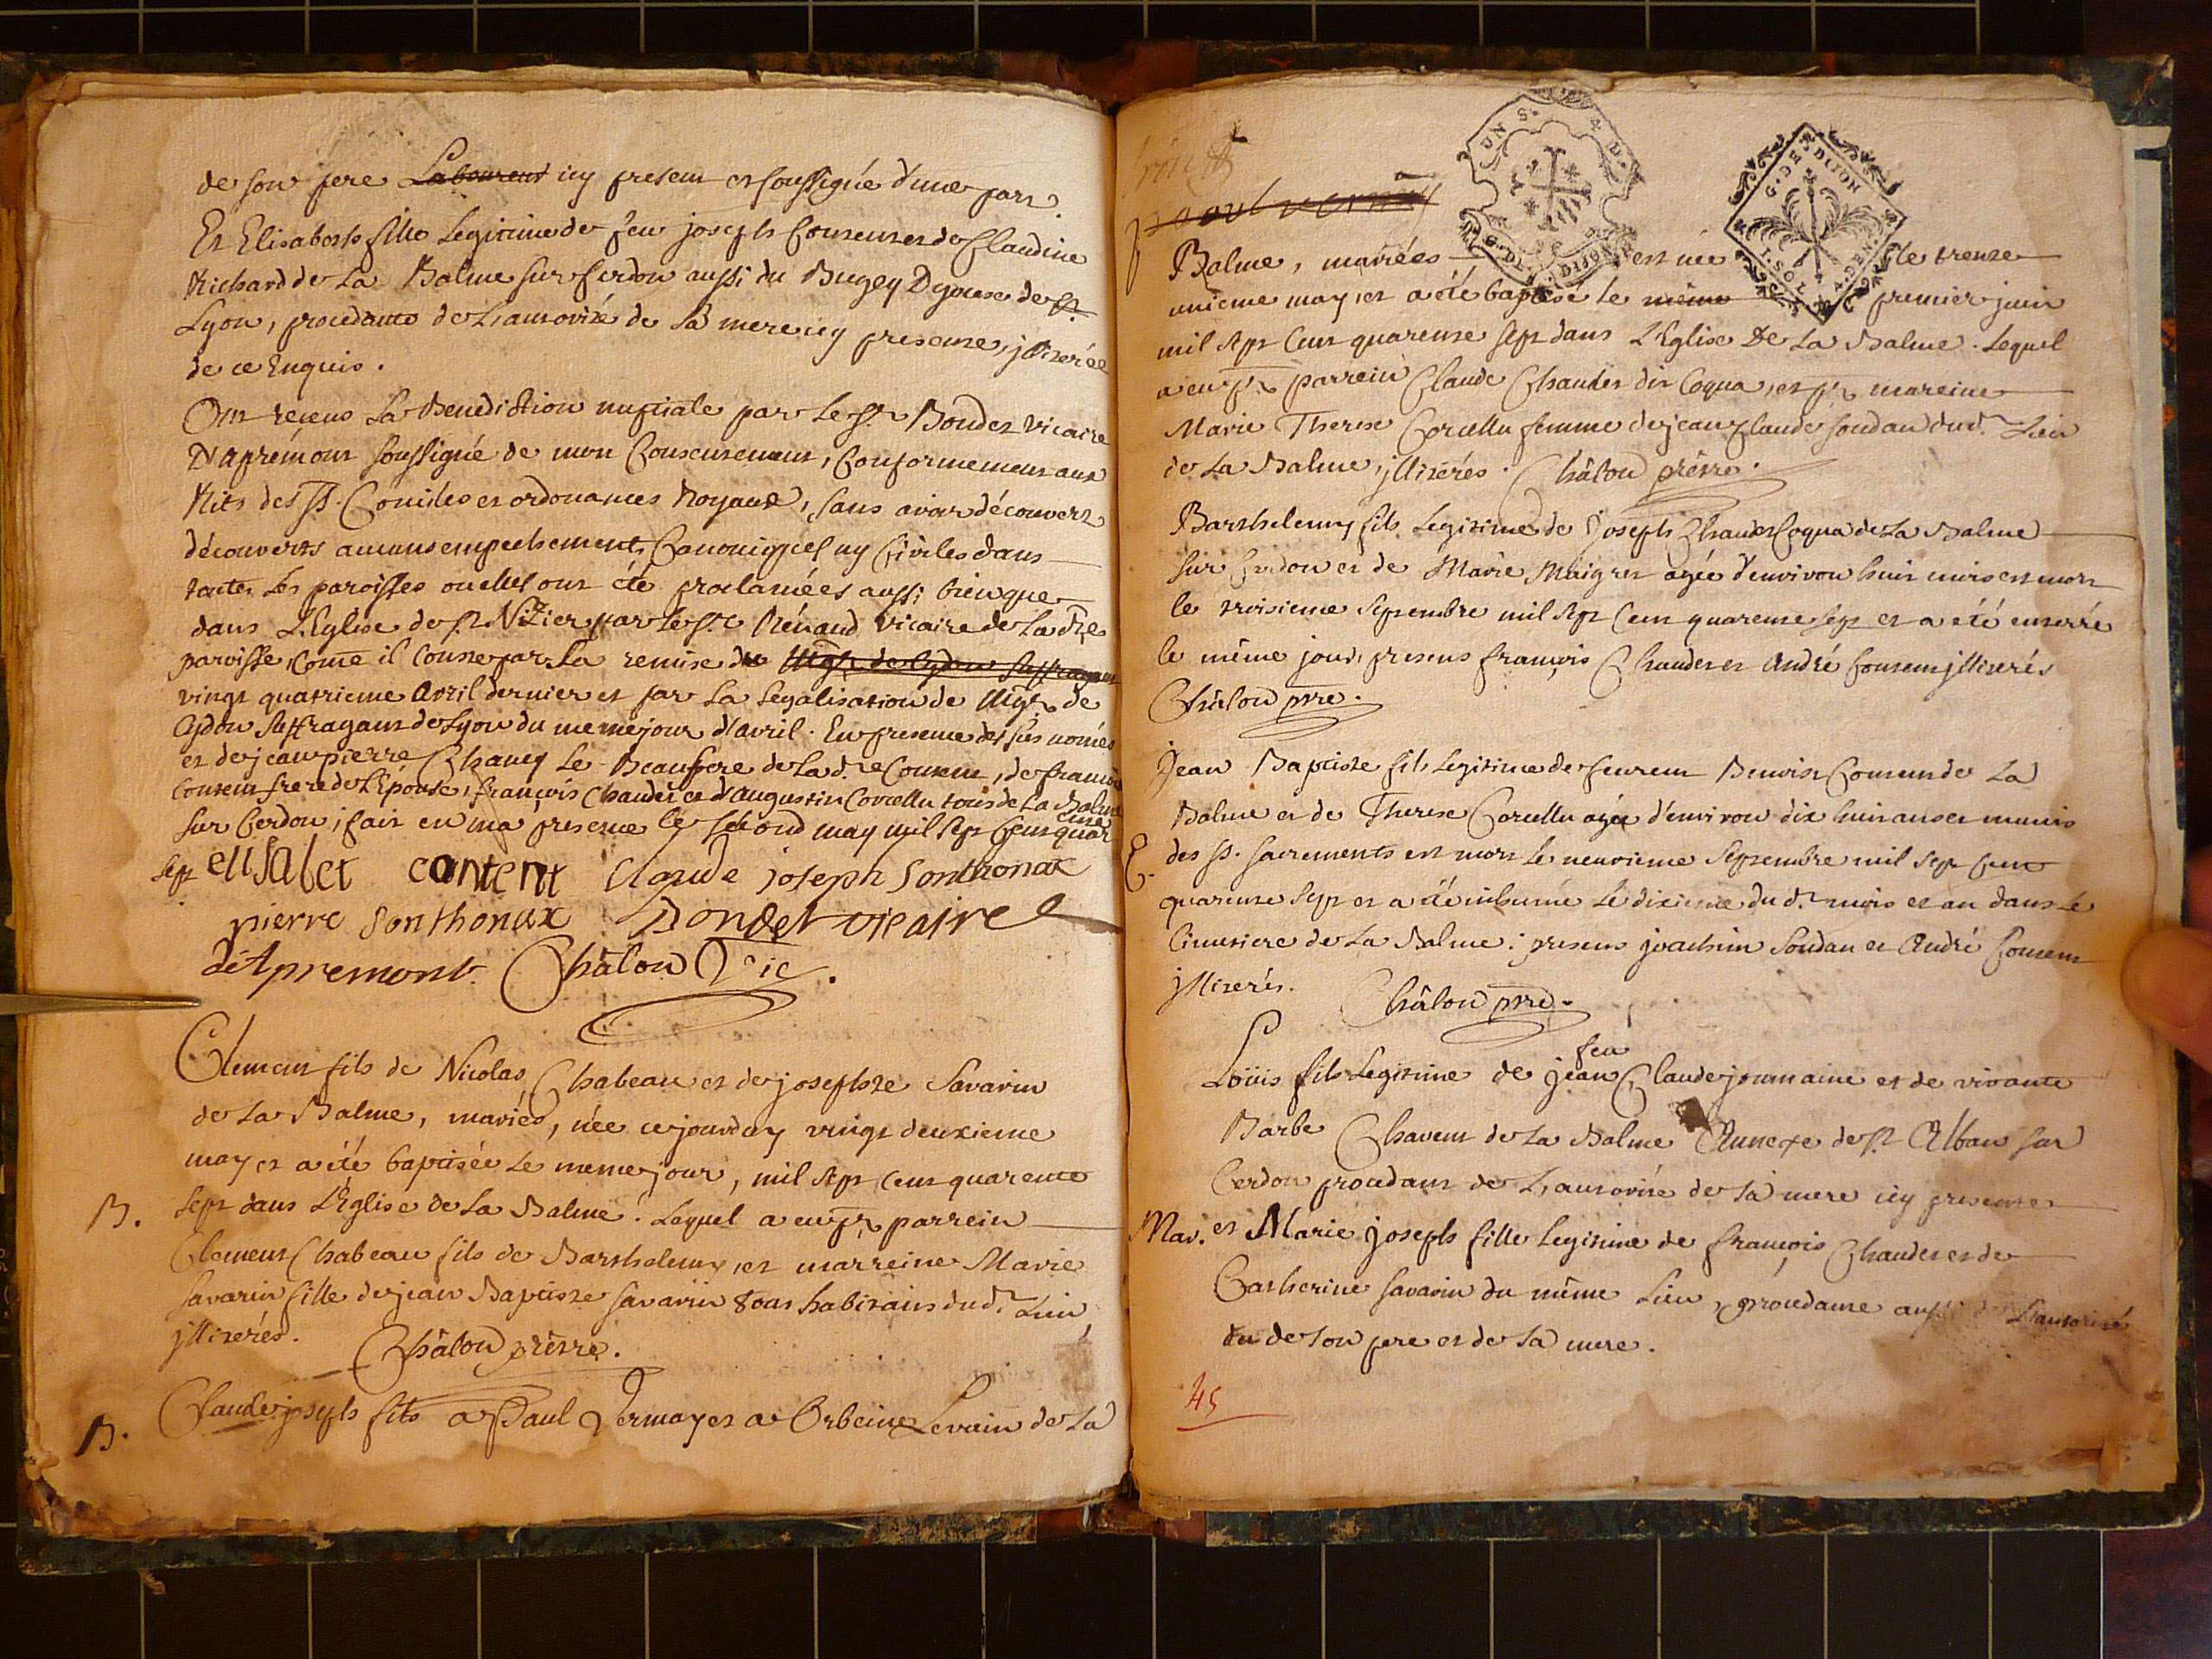 de son pere Laboureur icy present et soussigné d'une part.
Et Elisabeth fille Legitime de feu joseph Content et de Claudine
Richard de La Balme sur Cerdon aussi du Bugey Dyocese de
Lyon, procedante de L'autorité de sa mere icy presente, jlliterée
de ce Enquis.
Ont receus La Benediction nuptiale par Le Sr. Bondet vicaire
D'apremont soussigné de mon Consentement, Conformement aux
Rits des SS. Conciles et ordonances Royaux, sans avoir découvert
découverts aucuns empechements Canoniques ny Civiles dans
toutes Les paroisses ou elles ont été proclamées aussi bien que
dans L'Eglise de St. Nizier par le Sr. Rénaud vicaire de La dte
paroisse, Come il Conste par La remise du Mgr. de Cydon Suffragant
vingt quatrieme Avril dernier et par La Legalisation de Mgr. de
Cydon Suffragant de Lyon du meme jour d'avril. En presence des sus només
et de jean pierre Chaney Le Beaufrere de La d.te Content, de francois
Content frere de L'Epouse, françois Chaudet et d'Augustin Corcellu tous de La Balme
sur Cerdon, fait en ma presence le second may mil sept Cent quar
ente
sept elisabet content Claude joseph Sonthonax
pierre Sonthonax Bondet vicaire
d'Apremont. Châlon Vic.
Clement fils de Nicolas Chabeau et de josephte Savarin
de La Balme, mariés, née ce jourduy vingt deuxieme
may et a été baptisée Le meme jour, mil sept Cent quarente
B. sept dans L'Eglise de La Balme. Lequel a eu pr. parrein
Clement Chabeau fils de Barthelemy, et marreine Marie
Savarin fille de jean Baptiste Savarin tous habitans dud. Lieu,
jlliterés. Châlon prêtre.
B. Claude joseph fils a Paul Vermay et a Orbeine Levrain de La
Paul Vermay
Balme, mariées est née le trente
unieme may, et a été baptisé le même premier juin
mil sept Cent quarente sept dans L'Eglise De La Balme. Lequel
a eu pr. parrein Claude Chaudet dit Coqua, et pr. mareine
Marie Therese Corcellu femme de jean Claude Soudan dud. Lieu
de La Balme, jlliterés. Châlon prêtre.
Barthelemy fils Legitime de Joseph Chaudet Coqua de La Balme
sur Cerdon et de Marie Maigret agée d'environ huit mois est mort
le troisieme Septembre mil sept Cent quarente sept et a été enterré
le même jour, presens françois Chaudet et André Content jlliterés
Châlon ptre.
Jean Baptiste fils Legitime de feurent Benoist Content de La
Balme et de Therese Corcellu agée d'environ dix huit ans et munis
E. des SS. Sacrements est mort le neuvieme Septembre mil sept Cent
quarente sept et a été inhumé Le dixieme du d. mois et an dans Le
Cimetiere de La Balme. presens joachim Soudan et André Content
jlliterés. Châlon ptre.
feu
Loüis fils Legitime de jean Claude joumaine et de vivante
Barbe Chavent de La Balme Annexe de St. Alban sur
Cerdon procedant de L'autorité de sa mere icy presente
Mar. et Marie joseph fille Legitime de françois Chaudet et de
Catherine Savarin du même Lieu, procedante aussi de L'autorité
du de son pere et de sa mere.
45
UN S. 4 D.
G. DE DIJON
G. DE DIJON